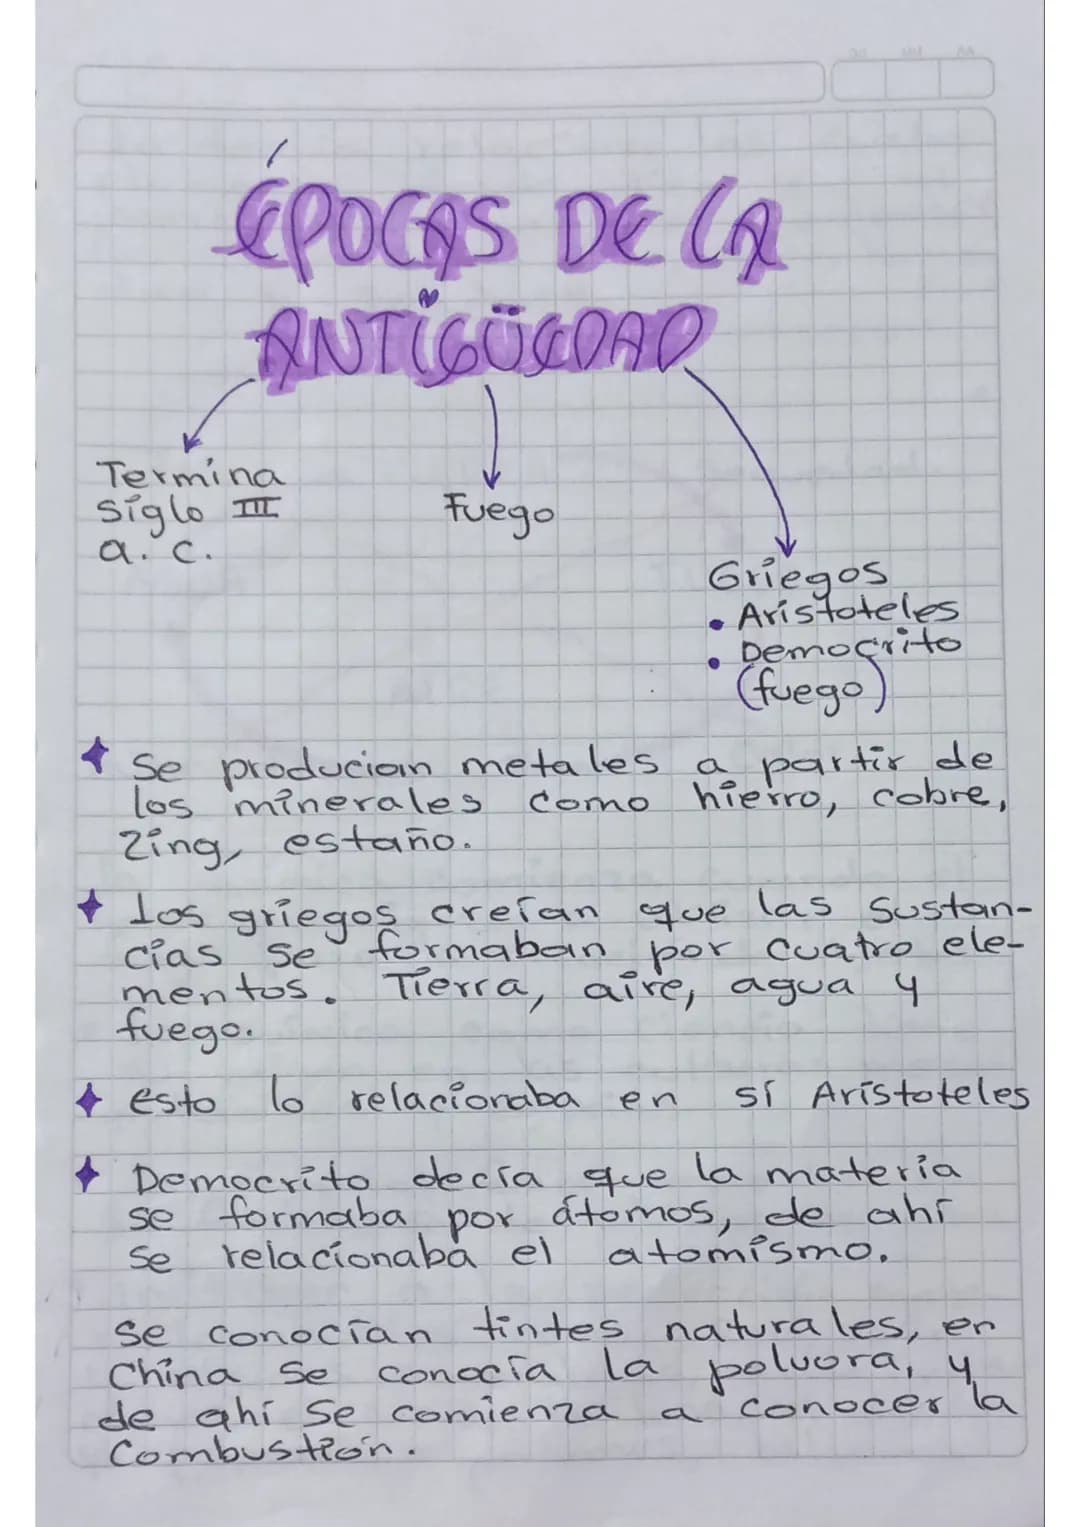 ÉPOCAS DE LA
ANTIGÜEDAD
Termina
siglo III
a. c.
Fuego
Griegos
• Aristoteles
• Democrito
(fuego)
Se producian metales a partir de
los minerales como hierro, cobre,
Zing, estaño.
Los griegos creían que las sustan-
cias se formaban por cuatro ele-
mentos. Tierra, aire, agua y
fuego.
esto lo relacionaba en sí Aristoteles
Democrito decía que la materia
se formaba por átomos, de ahí
se relacionaba el atomismo.
Se conocían tintes naturales, en
China se conocía la polvora, y
de ahí se comienza a conocer la
Combustión.